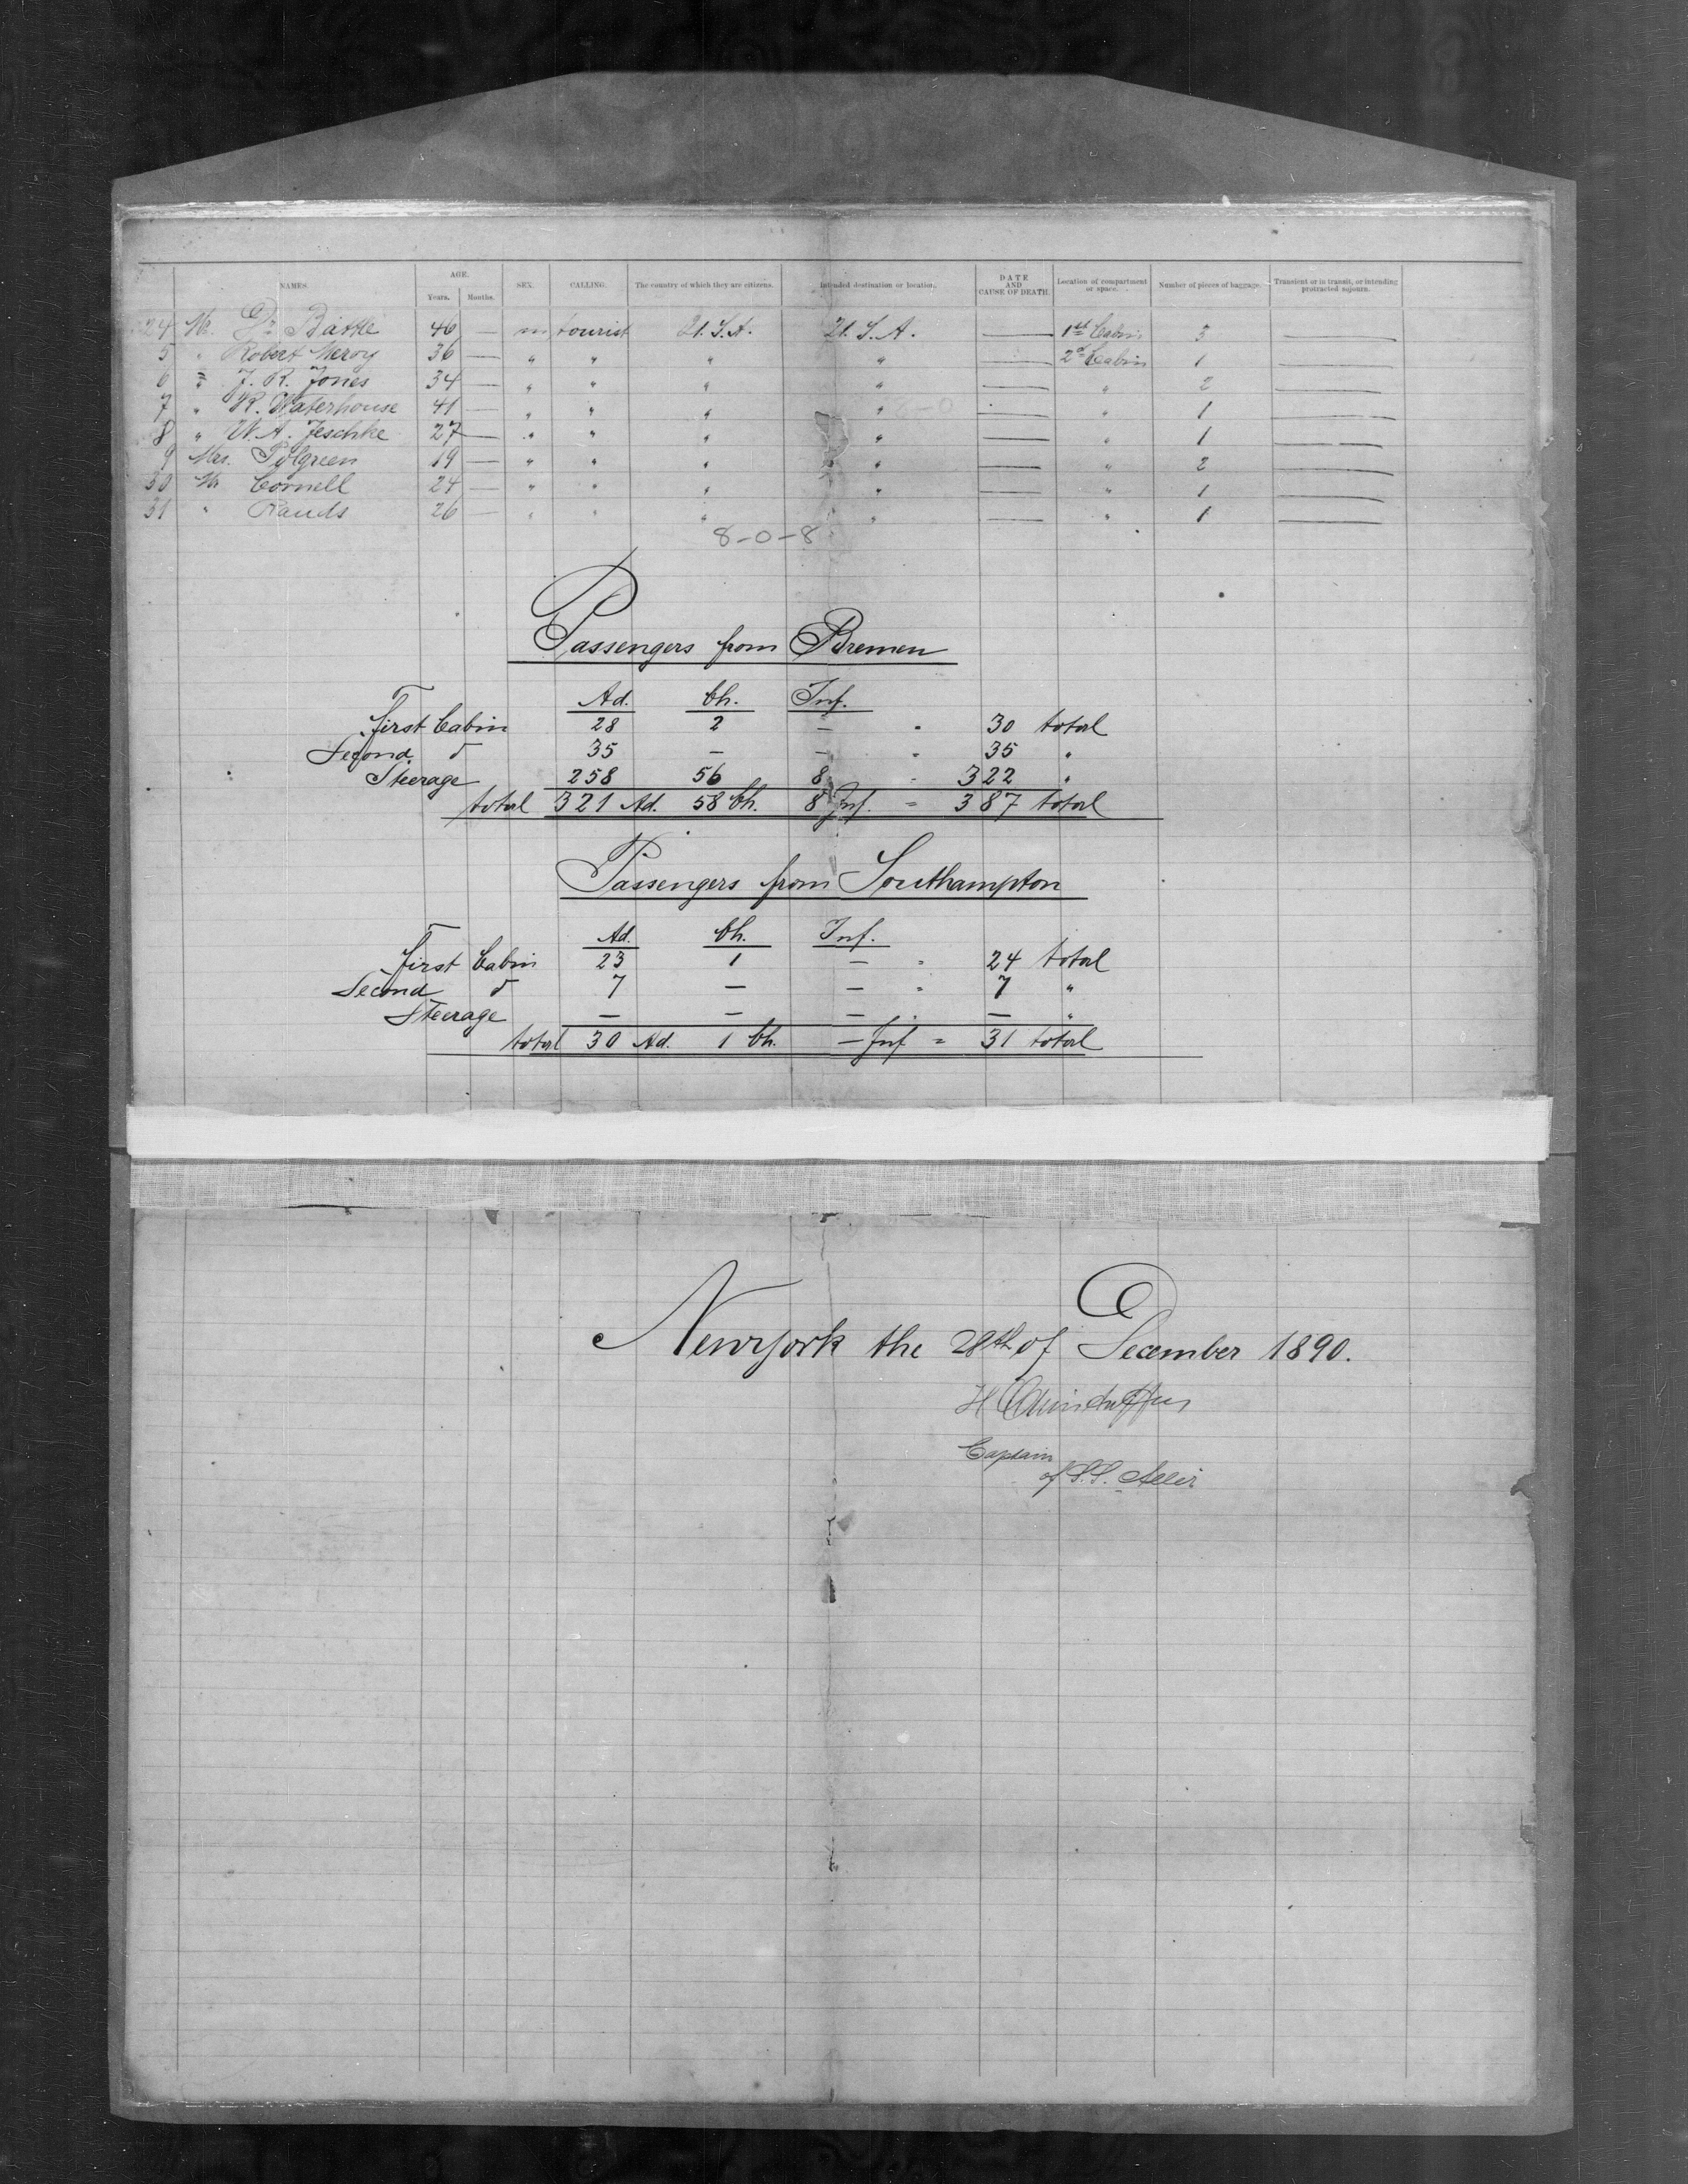 NAMES. AGE. Years. Months. SEX. CALLING. The country of which they are citizens. Intended destination or location. DATE AND CAUSE OF DEATH. Location of compartment or space. Number of pieces of baggage. Transient or in transit, or intending protracted sojourn.
24 Mr. Dr. Battle 46 — m tourist U.S.A. U.S.A. — 1st Cabin 3 —
5 " Robert Meroy 36 — " " " " — 2d Cabin 1 —
6 " J. R. Jones 34 — " " " " — " 2 —
7 " R. Waterhouse 41 — " " " " — " 1 —
8 " W. A. Jeschke 27 — " " " " — " 1 —
9 Mrs. Polgreen 19 — " " " " — " 2 —
30 Mr Cornell 24 — " " " " — " 1 —
31 " Rands 26 — " " " " — " 1 —
8-0-8
Passengers from Bremen
Ad. Ch. Inf.
First Cabin 28 2 — = 30 total
Second do 35 — — = 35 "
Steerage 258 56 8 = 322 "
total 321 Ad. 58 Ch. 8 Inf. = 387 total
Passengers from Southampton
Ad. Ch. Inf.
First Cabin 23 1 — = 24 total
Second do 7 — — = 7 "
Steerage — — — . — "
total 30 Ad. 1 Ch. — Inf = 31 total
Newyork the 28th of December 1890.
H
Captain
of S.S. Aller